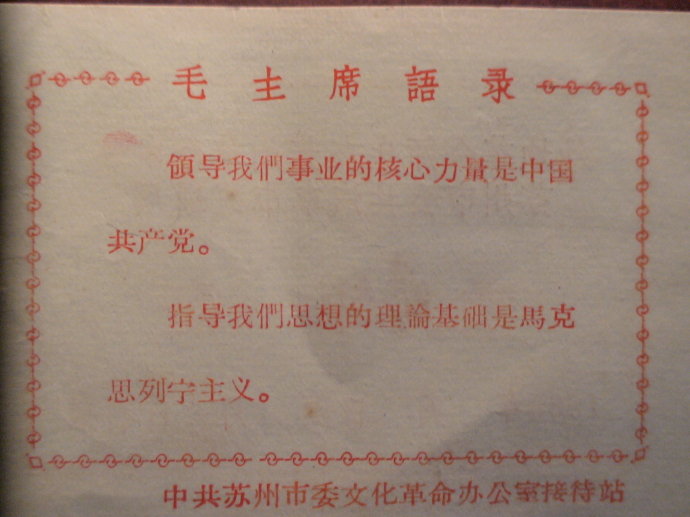 毛主席語录
領导我們事业的核心力量是中国
共产党。
指导我們思想的理論基础是馬克
思列宁主义。
中共苏州市委文化革命办公室接待站